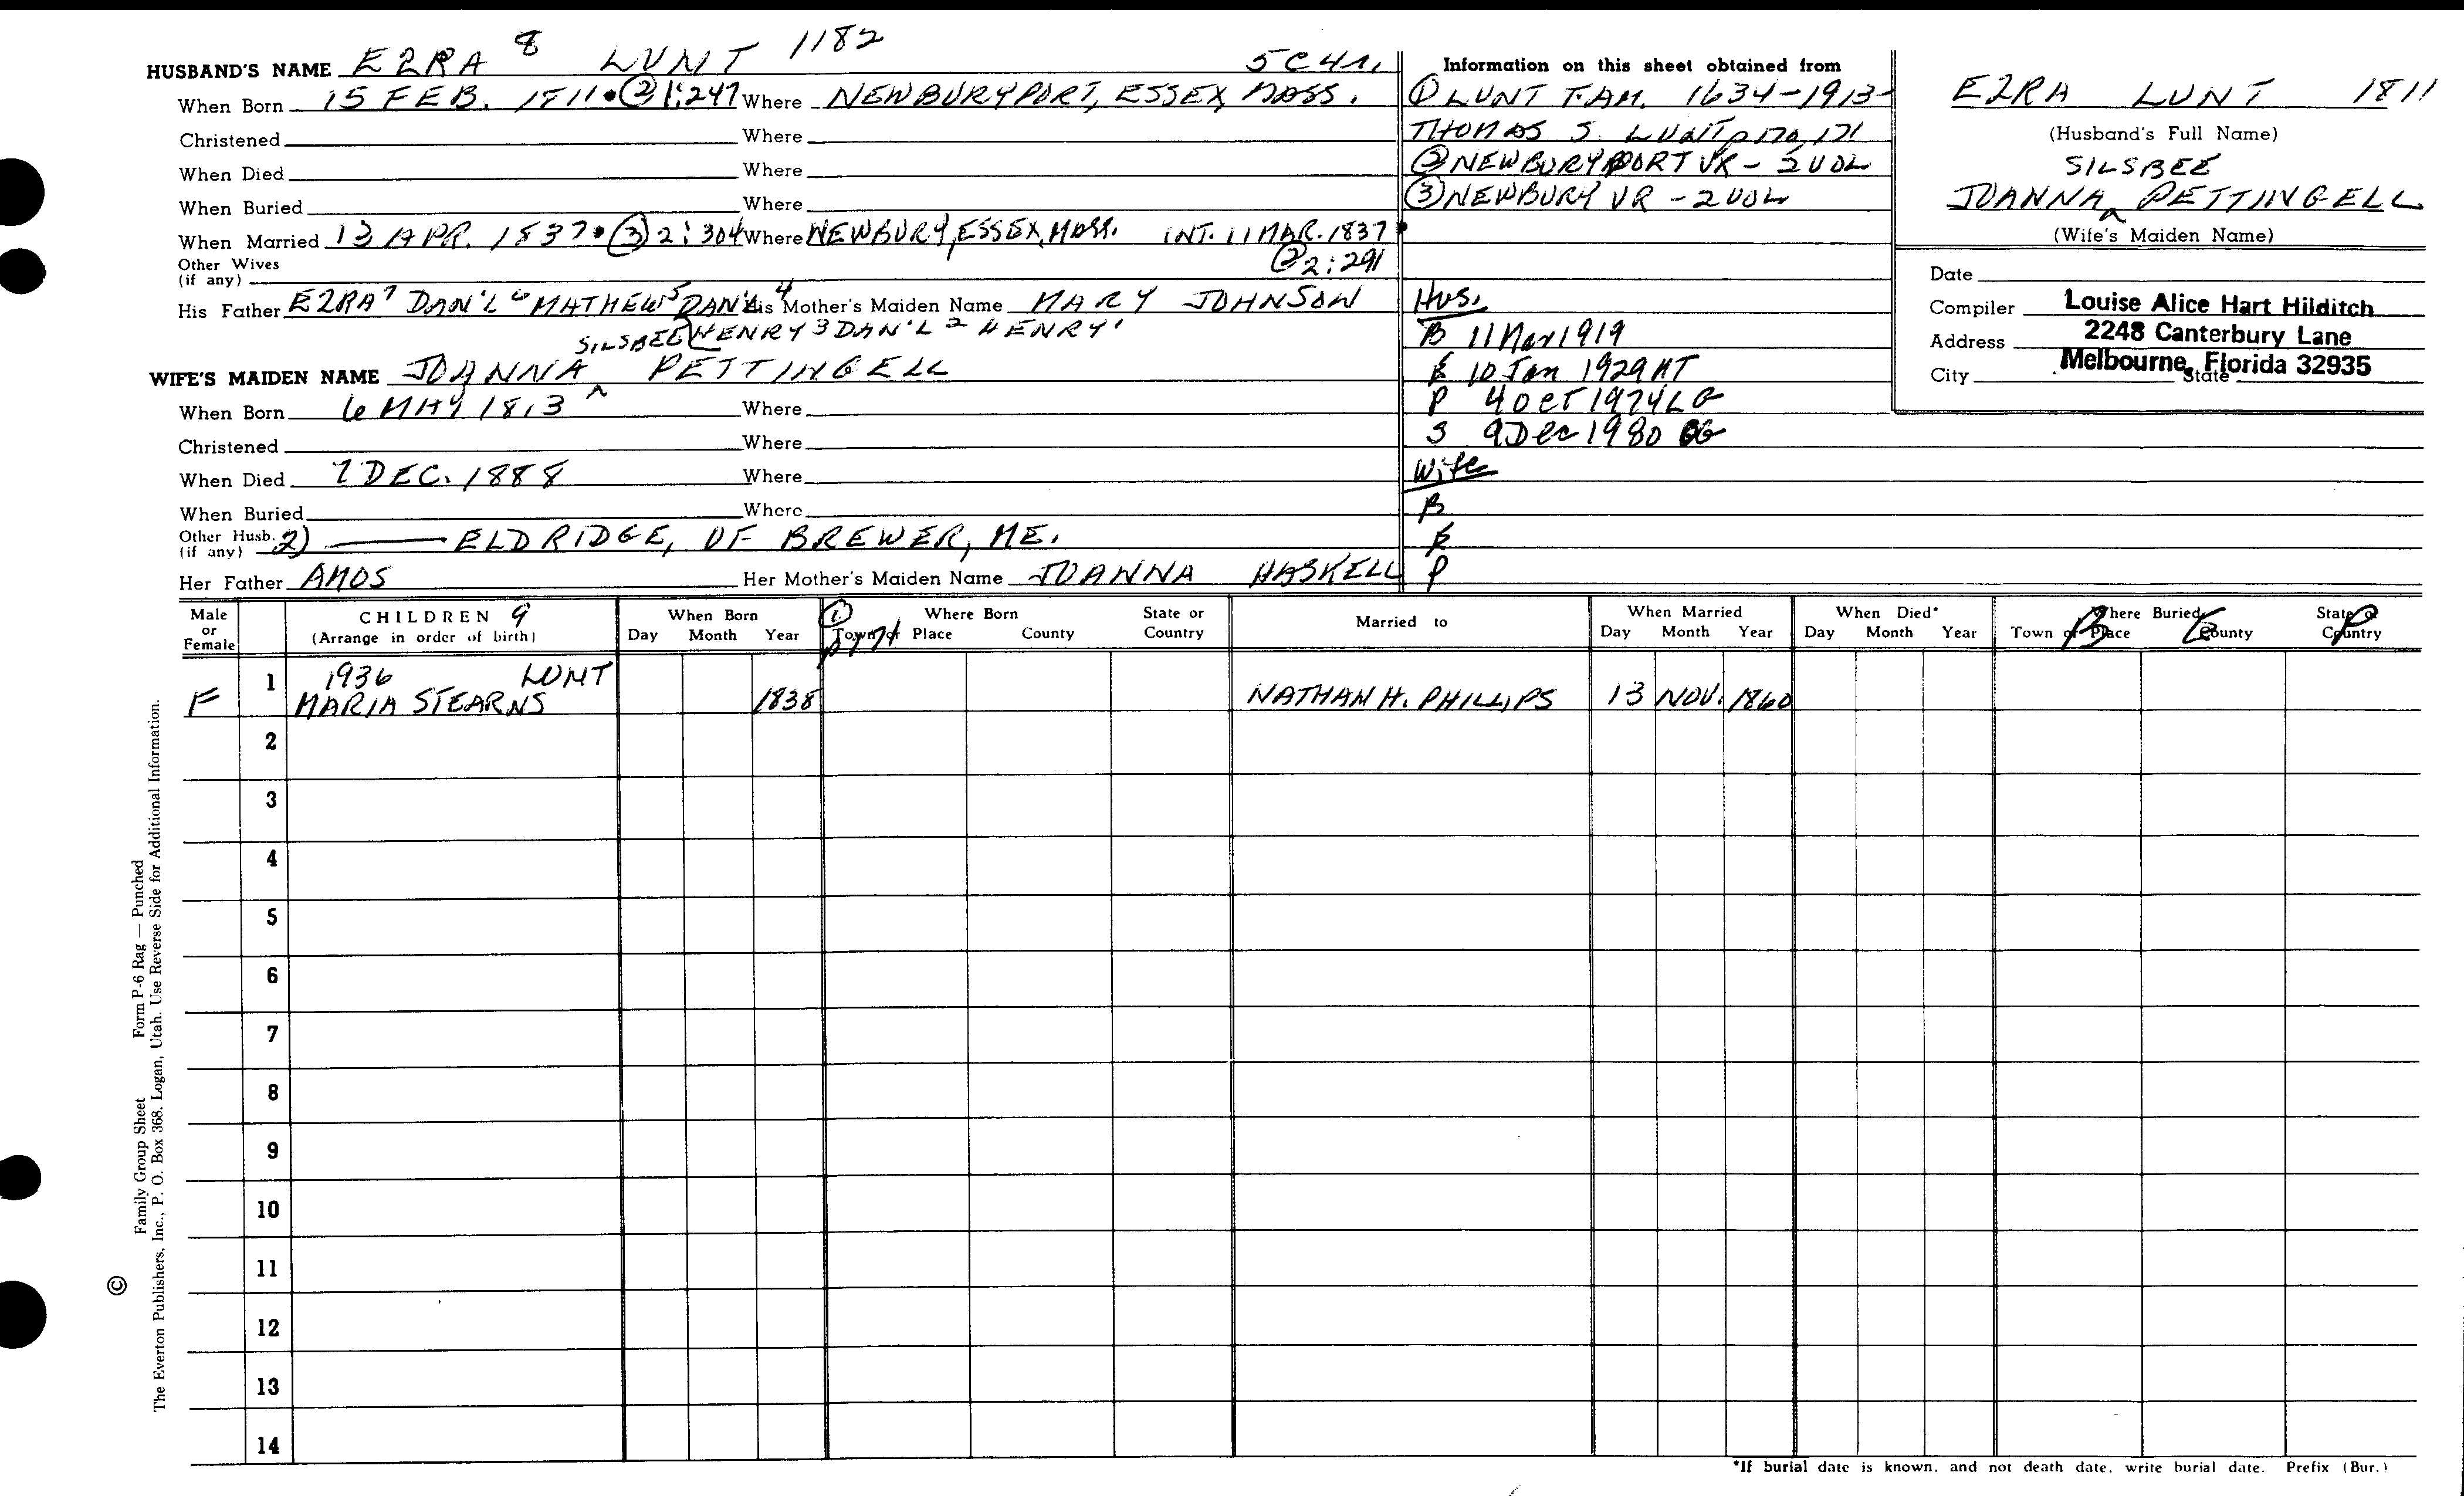 HUSBAND'S NAME EZRA 8 LUNT 1182 5C4R,
When Born 15 FEB. 1811 • ② 1:247 Where NEWBURYPORT, ESSEX MASS.
Christened Where
When Died Where
When Buried Where
When Married 13 APR. 1837 • ③ 2:304 Where NEWBURY, ESSEX, MASS. INT. 11 MAR. 1837 •
② 2:291
Other Wives
(if any)
His Father EZRA 7 DAN'L 6 MATHEW 5 DAN'L 4 His Mother's Maiden Name MARY JOHNSON
HENRY 3 DAN'L 2 HENRY 1
SILSBEE
WIFE'S MAIDEN NAME JOANNA ^ PETTINGELL
When Born 6 MAY 1813 Where
Christened Where
When Died 7 DEC. 1888 Where
When Buried Where
Other Husb. 2) ELDRIDGE, OF BREWER, ME.
(if any)
Her Father AMOS Her Mother's Maiden Name JOANNA HASKELL
Information on this sheet obtained from
① LUNT FAM. 1634-1913-
THOMAS S. LUNT p 170, 171
② NEWBURYPORT VR - 2 VOL
③ NEWBURY VR - 2 VOL
HUS.
B 11 Mar 1919
E 10 Jan 1929 AT
P 4 OCT 1974 LG
S 9 Dec 1980 OG
Wife
B
E
P
EZRA LUNT 1811
(Husband's Full Name)
SILSBEE
JOANNA ^ PETTINGELL
(Wife's Maiden Name)
Date
Compiler Louise Alice Hart Hilditch
Address 2248 Canterbury Lane
City Melbourne, Florida 32935 State
Male or Female CHILDREN 9 (Arrange in order of birth) When Born Day Month Year ① p 171 Where Born Town or Place County State or Country Married to When Married Day Month Year When Died* Day Month Year Where Buried Town or Place County State or Country B E P
1 1936 LUNT
F MARIA STEARNS 1838 NATHAN H. PHILLIPS 13 NOV. 1860
2
3
4
5
6
7
8
9
10
11
12
13
14
*If burial date is known, and not death date, write burial date. Prefix (Bur.)
© Family Group Sheet Form P-6 Rag — Punched
The Everton Publishers, Inc., P. O. Box 368, Logan, Utah. Use Reverse Side for Additional Information.